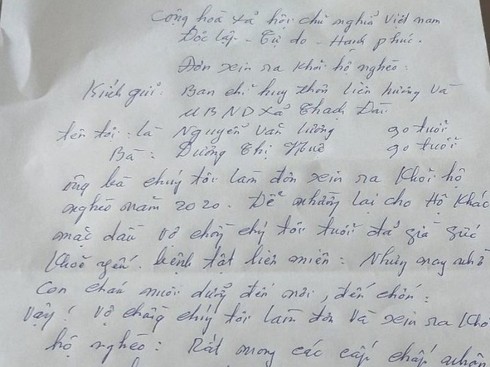 Cộng hoà xã hội chủ nghĩa Việt nam
Độc lập - Tự do - Hạnh phúc.
Đơn xin ra khỏi hộ nghèo:
Kính gửi: Ban chỉ huy thôn Liên hương và
UBND xã Thạch Đài
tên tôi: là Nguyễn Văn Lương 90 tuổi
Bà: Dương Thị 90 tuổi
ông bà chúng tôi làm đơn xin ra Khỏi hộ
nghèo năm 2020. Để nhường lại cho Hộ Khác
mặc dầu vợ chồng chúng tôi tuổi đã già sức
Khoẻ yếu. bệnh tật liên miên: Nhưng nay nhờ
Con cháu nuôi dưỡng đến nơi, đến chốn:
Vậy: vợ chồng chúng tôi làm đơn và xin ra Khỏi
hộ nghèo: Rất mong các cấp chấp nhận